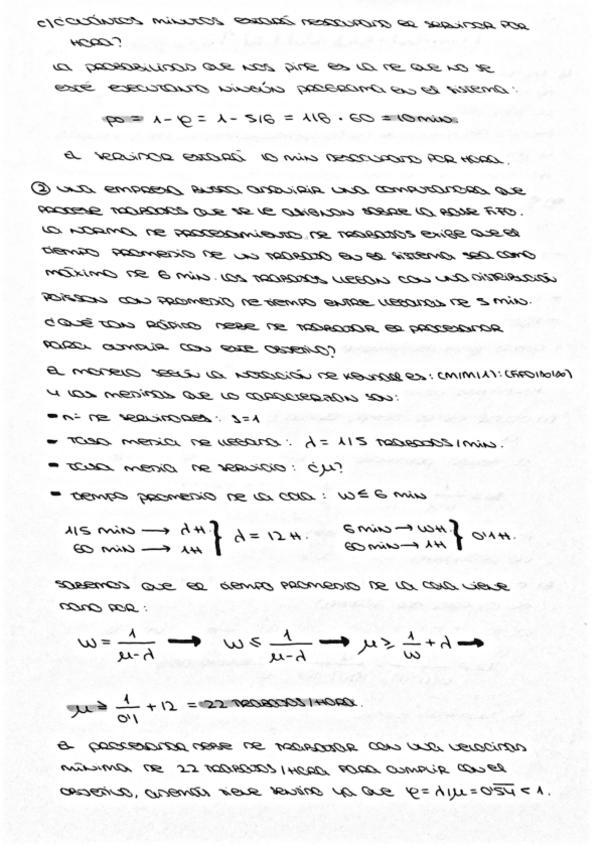 c/¿CUÁNTOS MINUTOS ESTARÁ DESOCUPADO EL SERVIDOR POR
HORA?
LA PROBABILIDAD QUE NOS PIDE ES LA DE QUE NO SE
ESTÉ EJECUTANDO NINGÚN PROGRAMA EN EL SISTEMA:
p0 = 1-φ = 1-5/6 = 1/6 · 60 = 10 min.
EL SERVIDOR ESTARÁ 10 MIN DESOCUPADO POR HORA.
② UNA EMPRESA BUSCA ADQUIRIR UNA COMPUTADORA QUE
PROCESE TRABAJOS QUE SE LE ASIGNAN SOBRE LA BASE FIFO.
LA NORMA DE PROCESAMIENTO DE TRABAJOS EXIGE QUE EL
TIEMPO PROMEDIO DE UN TRABAJO EN EL SISTEMA SEA COMO
MÁXIMO DE 6 MIN. LOS TRABAJOS LLEGAN CON UNA DISTRIBUCIÓN
POISSON CON PROMEDIO DE TIEMPO ENTRE LLEGADAS DE 5 MIN.
¿QUÉ TAN RÁPIDO DEBE DE TRABAJAR EL PROCESADOR
PARA CUMPLIR CON ESTE OBJETIVO?
EL MODELO SEGÚN LA NOTACIÓN DE KENDALL ES: (M/M/1):(FIFO/∞/∞)
Y LAS MEDIDAS QUE LO CARACTERIZAN SON:
- nº DE SERVIDORES: S=1
- TASA MEDIA DE LLEGADA: λ = 1/5 TRABAJOS/MIN.
- TASA MEDIA DE SERVICIO: ¿μ?
- TIEMPO PROMEDIO DE LA COLA: W ≤ 6 MIN
1/5 MIN → λ H } λ = 12 H. 6 MIN → W H } 0'1 H.
60 MIN → 1H 60 MIN → 1H
SABEMOS QUE EL TIEMPO PROMEDIO DE LA COLA VIENE
DADO POR:
W = 1/(μ-λ) → W ≤ 1/(μ-λ) → μ ≥ 1/W + λ →
μ ≥ 1/0'1 + 12 = 22 TRABAJOS/HORA.
EL PROCESADOR DEBE DE TRABAJAR CON UNA VELOCIDAD
MÍNIMA DE 22 TRABAJOS/HORA PARA CUMPLIR CON EL
OBJETIVO, ADEMÁS TIENE SENTIDO YA QUE φ = λ/μ = 0'54 < 1.